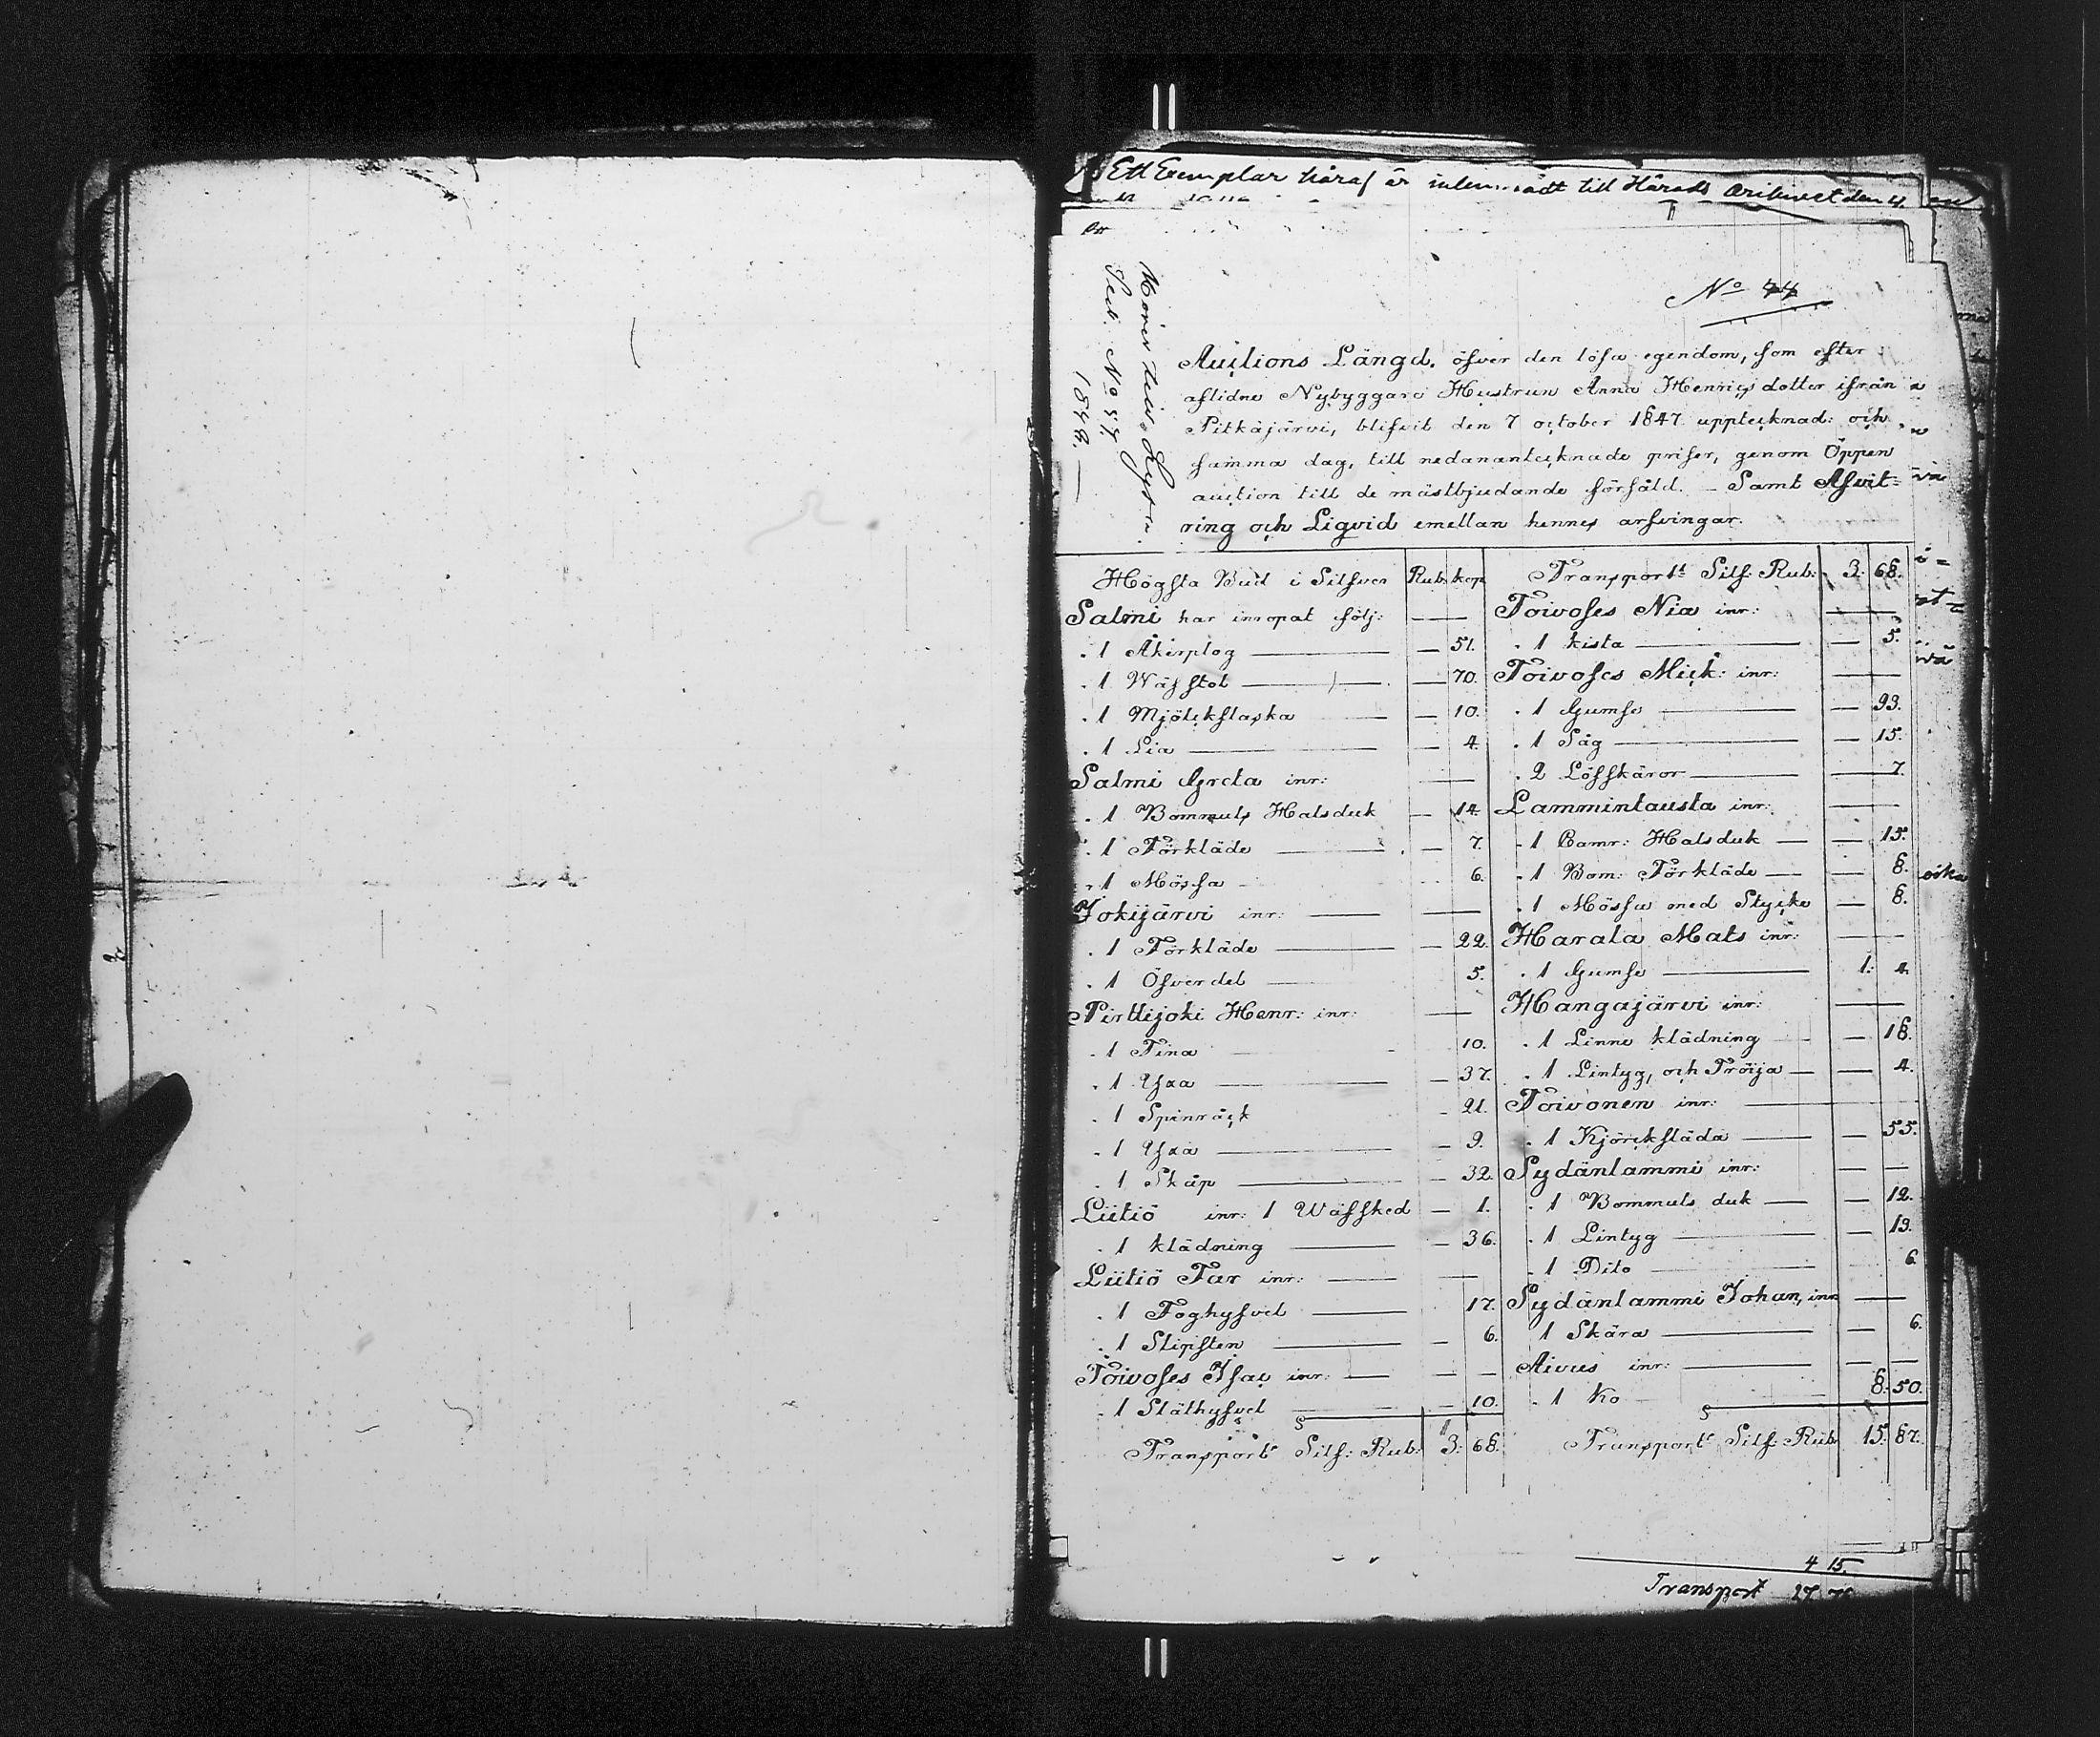 Ett Exemplar häraf är inlemnadt till Härads Arkivet den
No 44
Sect. No 57.
1848.
Auctions Längd, öfver den lösa egendom, som efter
aflidne Nybyggare Hustrun Anna Henricsdotter ifrån
Pitkäjärvi, blifvit den 7 october 1847 upptecknad: och
samma dag, till nedanantecknade priser, genom Öppen
auction till de mästbjudande försåld. - Samt Afvit-
ring och Liqvid emellan hennes arfvingar.
Högsta Bud i Silfver Rub: kop
Salmi har inropat följ: — —
1 Åkerplog — 51.
1 Wäfstol — 70.
1 Mjölckflaska — 10.
1 Lia — 4.
Salmi Greta inr: —
1 Bommuls Halsduk — 14.
1 Förkläde — 7.
1 Mössa 6.
Jokijärvi inr: —
1 Förkläde — 22.
1 Öfverdel 5.
Pirttijoki Henr: inr: —
1 Tina 10.
1 Yxa — 37.
1 Spinråck - 21.
1 Yxa — 9.
1 Skåp — 32.
Lütiö inr: 1 Wäfsked — 1.
1 klädning — 36.
Lütiö Far inr: —
1 Foghyfvel 17.
1 Slipsten — 6.
Toivoses Isac inr: — —
1 Släthyfvel — 10.
Transport Silf: Rub: 3: 68.
Transport Silf: Rub: 3: 68.
Toivoses Nia inr: —
1 kista — 5.
Toivoses Mick: inr: —
1 Gumse — 93.
1 Såg — 15.
2 Löfskäror — 7.
Lammintausta inr: —
1 Camr: Halsduk — 15.
1 Bom: Förkläde — 8.
1 Mössa med Stycke — 8.
Harala Mats inr: —
1 Gumse 1: 4.
Hangajärvi inr: —
1 Linne klädning — 18.
1 Lintyg, och Tröija — 4.
Toivonen inr: —
1 Kjörcksläda — 55.
Sydänlammi inr: — —
1 Bommuls duk — 12.
1 Lintyg — 13.
1 Dito 6.
Sydänlammi Johan, inr —
1 Skära — 6.
Aivus inr: — —
1 Ko 8: 50.
Transport Silf: Rub 15: 87.
4 15.
Transport 27